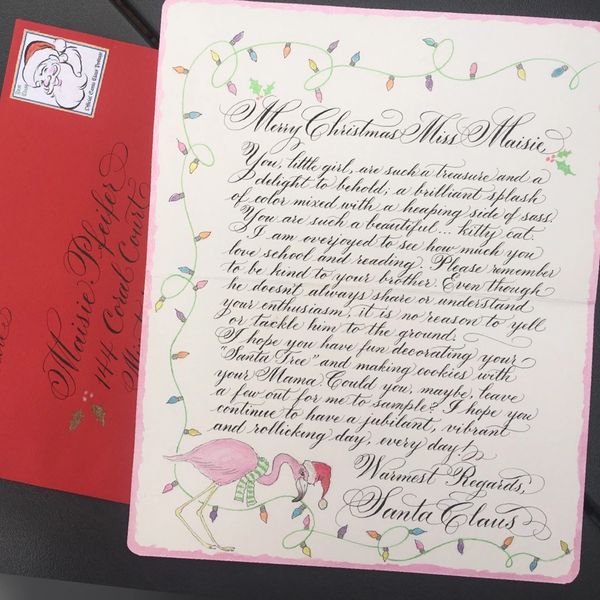 Merry Christmas Miss Maisie,
You, little girl, are such a treasure and a
delight to behold; a brilliant splash
of color mixed with a heaping side of sass.
You are such a beautiful... kitty cat.
I am overjoyed to see how much you
love school and reading. Please remember
to be kind to your brother. Even though
he doesn't always share or understand
your enthusiasm, it is no reason to yell
or tackle him to the ground.
I hope you have fun decorating your
"Santa Tree" and making cookies with
your Mama. Could you, maybe, leave
a few out for me to sample? I hope you
continue to have a jubilant, vibrant
and rollicking day, every day!
Warmest Regards,
Santa Claus
Maisie Pfeifer
144 Coral Court